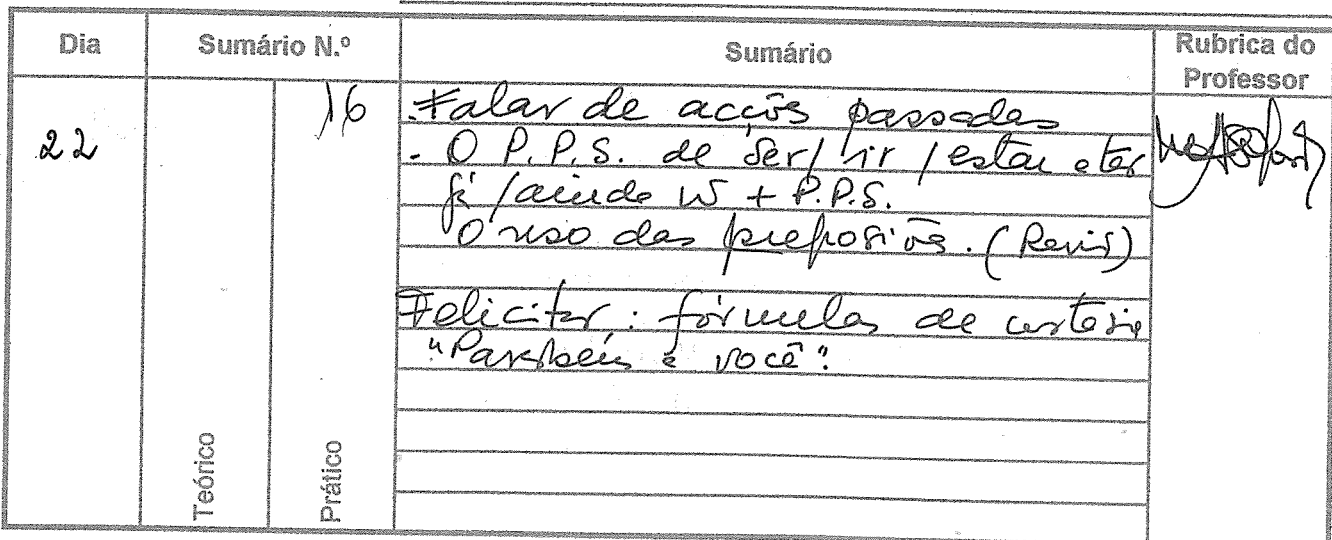 Dia Sumário N.º Sumário Rubrica do Professor
22 16 . Falar de acções passadas
- O P.P.S. de ser / ir / estar e ter
já / ainda não + P.P.S.
O uso das preposições. (Revis)
Felicitar : fórmulas de cortesia
"Parabéns a você".
Teórico Prático